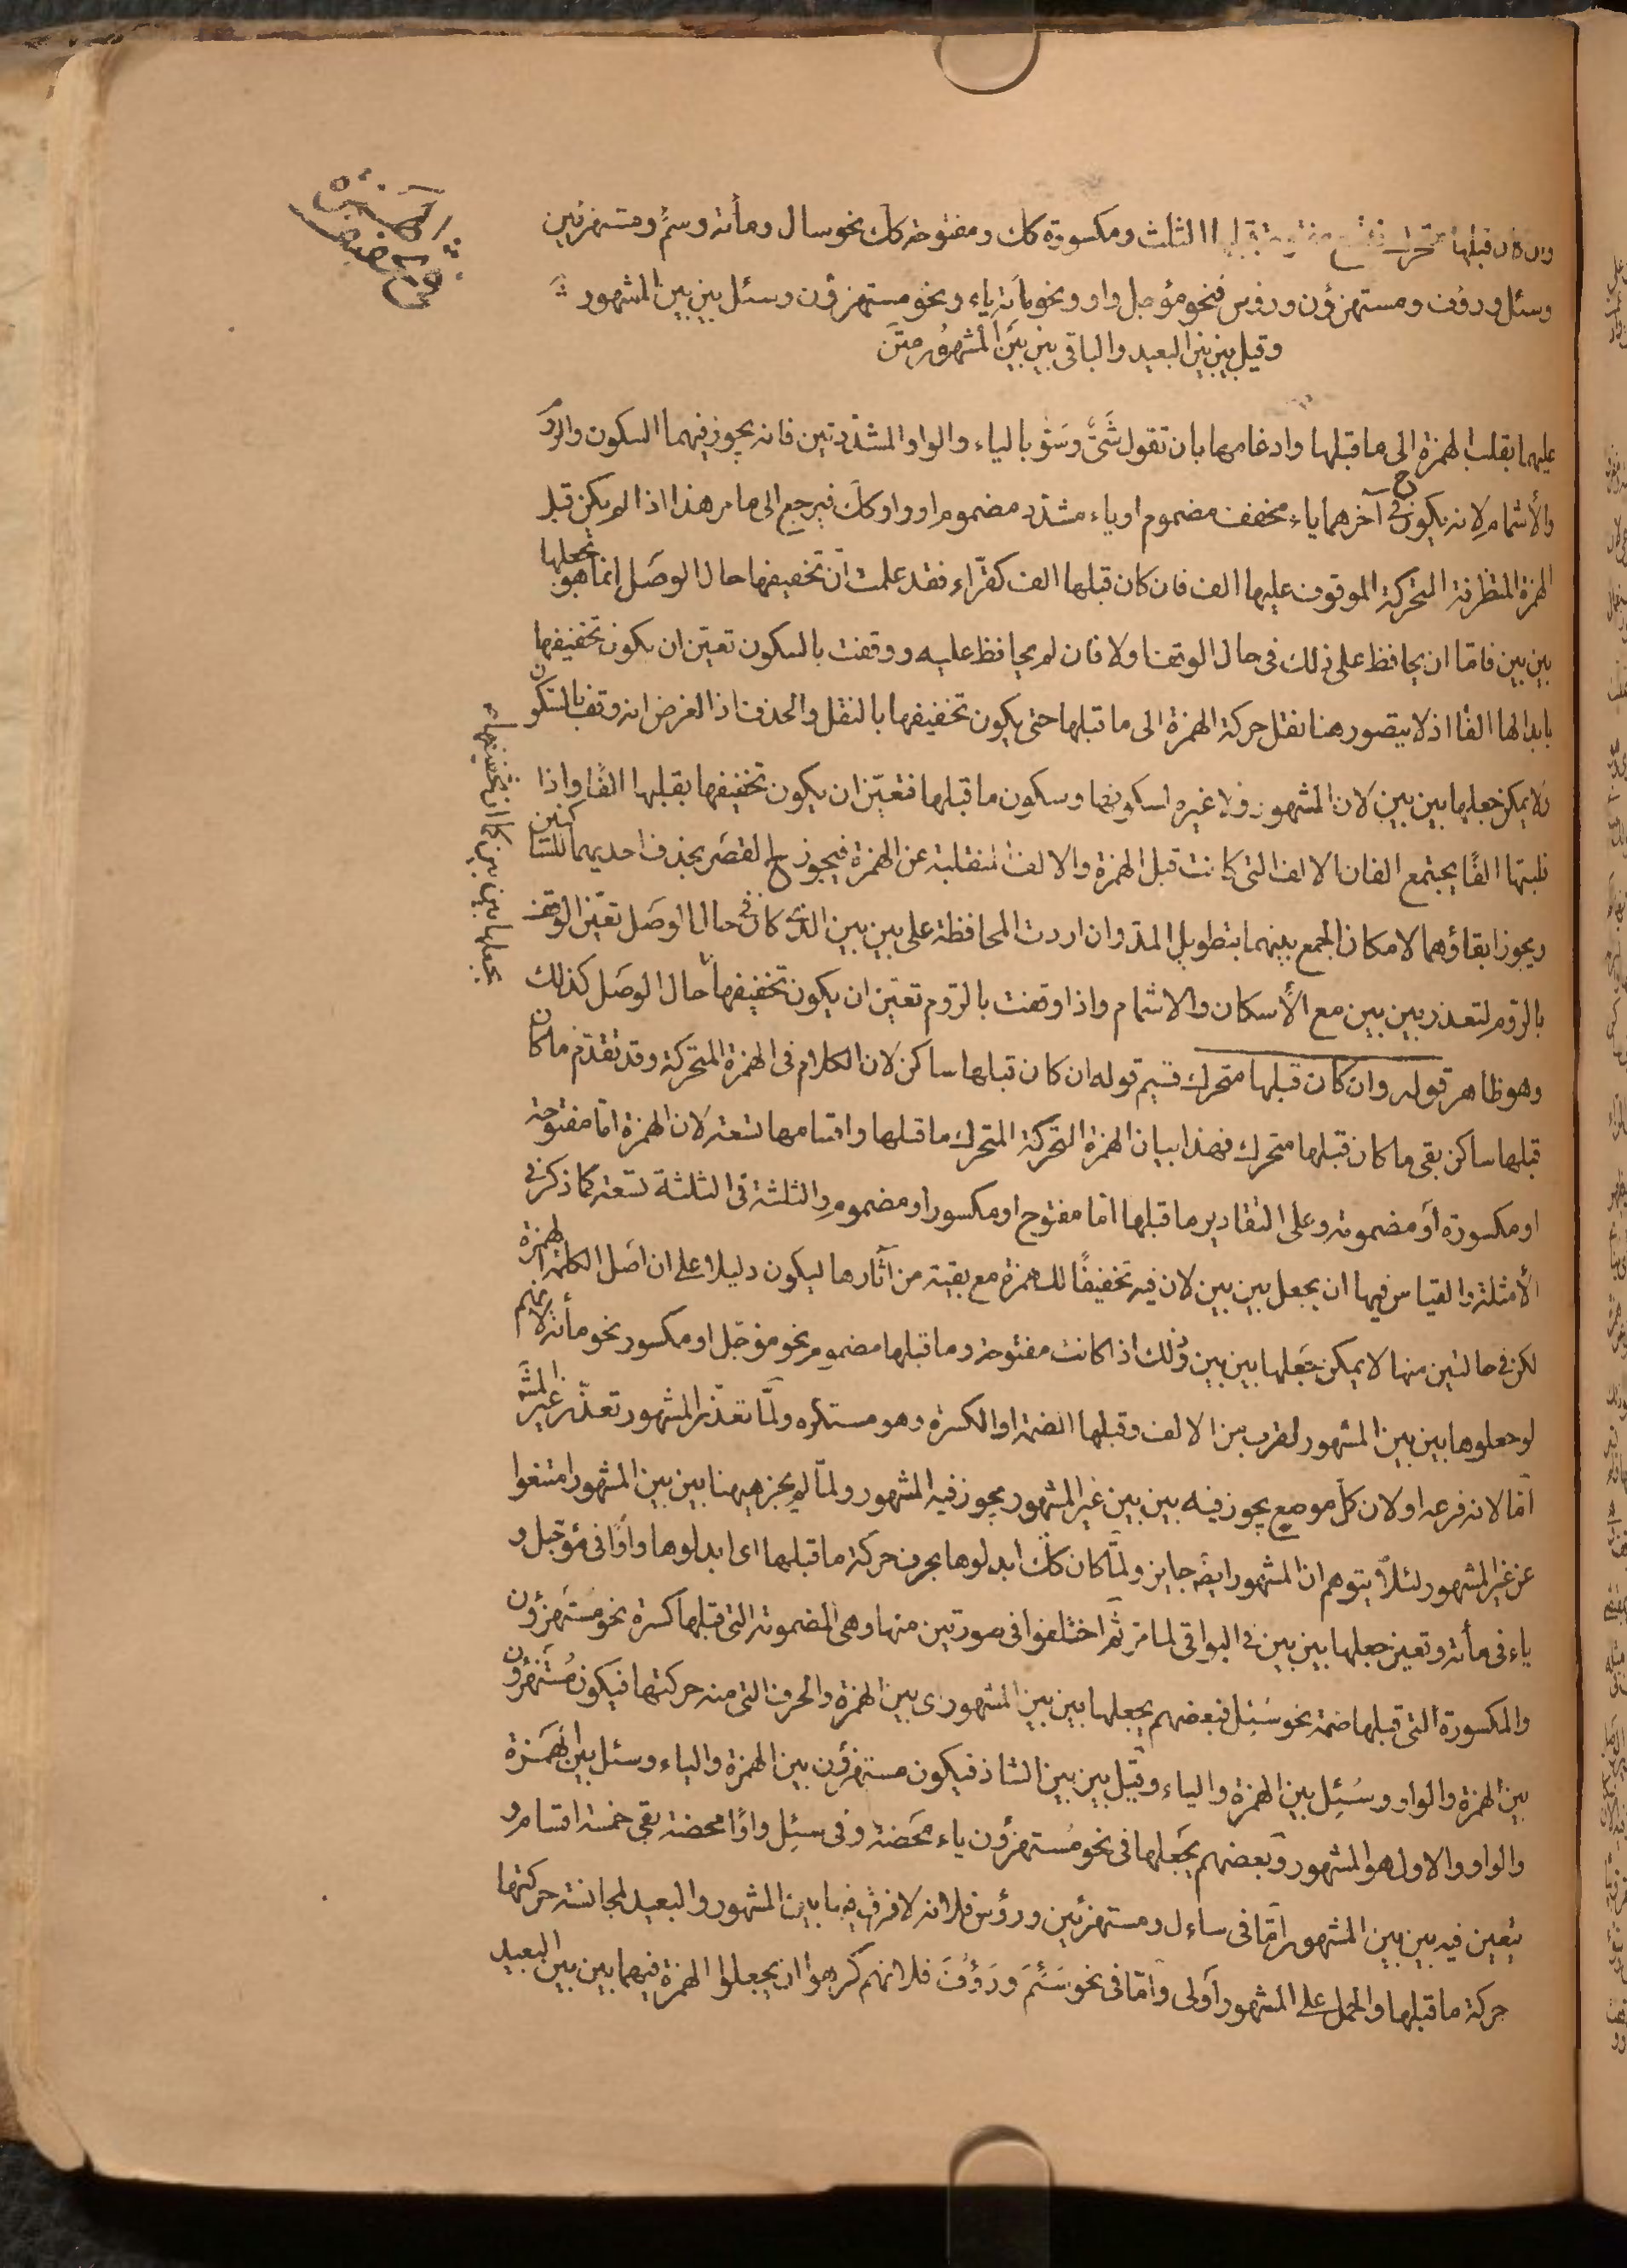 وان كان قبلها متحرك فتسع مفتوحة قبلها الثلث ومكسورة كك ومفتوحة كك نحو سال ومأته وسئم ومستهزئين
وسئل ورؤف ومستهزؤن ورؤس فنحو مؤجل واو ونحو مأته ياء ونحو مستهزؤن وسئل بين بين المشهور
وقيل بين بين البعيد والباقي بين بين المشهور متن
عليهما بقلب الهمزة الى ما قبلها وادغامها بان تقول شىّ وسوّ بالياء والواو المشددتين فانه يجوز فيهما السكون والروم
والأشمام لانه يكون ح في آخرهما ياء مخفف مضموم او ياء مشدد مضموم او واو كك فيرجع الى ما مر هذا اذا لم يكن قبل
الهمزة المتطرفة المتحركة الموقوف عليها الف فان كان قبلها الف كقرّاء فقد علمت ان تخفيفها حال الوصل انما هو بجعلها
بين بين فامّا ان يحافظ على ذلك فى حال الوقف اولا فان لم يحافظ عليه ووقفت بالسكون تعيّن ان يكون تخفيفها
بابدالها الفًا اذ لا يتصور هنا نقل حركة الهمزة الى ما قبلها حتى يكون تخفيفها بالنقل والحذف اذ الغرض انه وقف بالسكون
ولا يمكن جعلها بين بين لان المشهور ولا غيره لسكونها وسكون ما قبلها فتعيّن ان يكون تخفيفها بقلبها الفًا واذا
قلبتها الفًا يجتمع الفان الالف التى كانت قبل الهمزة والالف المنقلبة عن الهمزة فيجوز ح القصر بحذف احديهما للساكنين
ويجوز ابقاؤهما لامكان الجمع بينهما بتطويل المد وان اردت المحافظة على بين بين الذى كان فى حال الوصل تعيّن الوقف
بالروم لتعذر بين بين مع الأسكان والاشمام واذا وقفت بالرّوم تعيّن ان يكون تخفيفها حال الوصل كذلك
وهو ظاهر قوله وان كان قبلها متحرك قسيم قوله ان كان قبلها ساكن لان الكلام فى الهمزة المتحركة وقد تقدّم ما كان
قبلها ساكن بقى ما كان قبلها متحرك فهذا بيان الهمزة المتحركة المتحرك ما قبلها واقسامها تسعة لان الهمزة امّا مفتوحة
او مكسورة أو مضمومة وعلى التقادير ما قبلها امّا مفتوح او مكسور او مضموم والثلثة فى الثلثة تسعة كما ذكر فى
الأمثلة والقياس فيها ان يجعل بين بين لان فيه تخفيفًا للهمزة مع بقية من آثارها ليكون دليلا على ان اصل الكلمة الهمزة
لكن فى حالتين منها لا يمكن جعلها بين بين وذلك اذا كانت مفتوحة وما قبلها مضموم نحو مؤجّل او مكسور نحو مأته لانهم
لو جعلوها بين بين المشهور لقرب من الالف وقبلها الضمة او الكسرة وهو مستكره ولمّا تعذّر المشهور تعذّر غير المش
امّا لانه فرعه او لان كلّ موضع يجوز فيه بين بين غير المشهور يجوز فيه المشهور ولمّا لم يجز ههنا بين بين المشهور امتنعوا
عن غير المشهور لئلا يتوهم ان المشهور ايضا جايز ولمّا كان كك ابدلوها بحرف حركة ما قبلها اى ابدلوها واوًا فى مؤجّل و
ياء فى مأته وتعين جعلها بين بين فى البواقى لما مرّ ثم اختلفوا فى صورتين منها وهى المضمومة التى قبلها كسرة نحو مستهزؤن
والمكسورة التى قبلها ضمة نحو سُئِل فبعضهم يجعلها بين بين المشهور اى بين الهمزة والحرف التى منه حركتها فيكون مُستهزؤن
بين الهمزة والواو وسُئِل بين الهمزة والياء وقيل بين بين الشاذ فيكون مستهزؤن بين الهمزة والياء وسئل بين الهمزة
والواو والاول هو المشهور وبعضهم يجعلها فى نحو مُستهزؤن ياء محضة وفى سئِل واوًا محضة بقى خمسة اقسام و
يتعين فيه بين بين المشهور امّا فى ساءل ومستهزئين ورؤس فلانه لا فرق فيه ما بين المشهور والبعيد لمجانسة حركتها
حركة ما قبلها والحمل على المشهور أولى وامّا فى نحو سَئِمَ ورَؤُفَ فلانهم كرهوا ان يجعلوا الهمزة فيهما بين بين البعيد